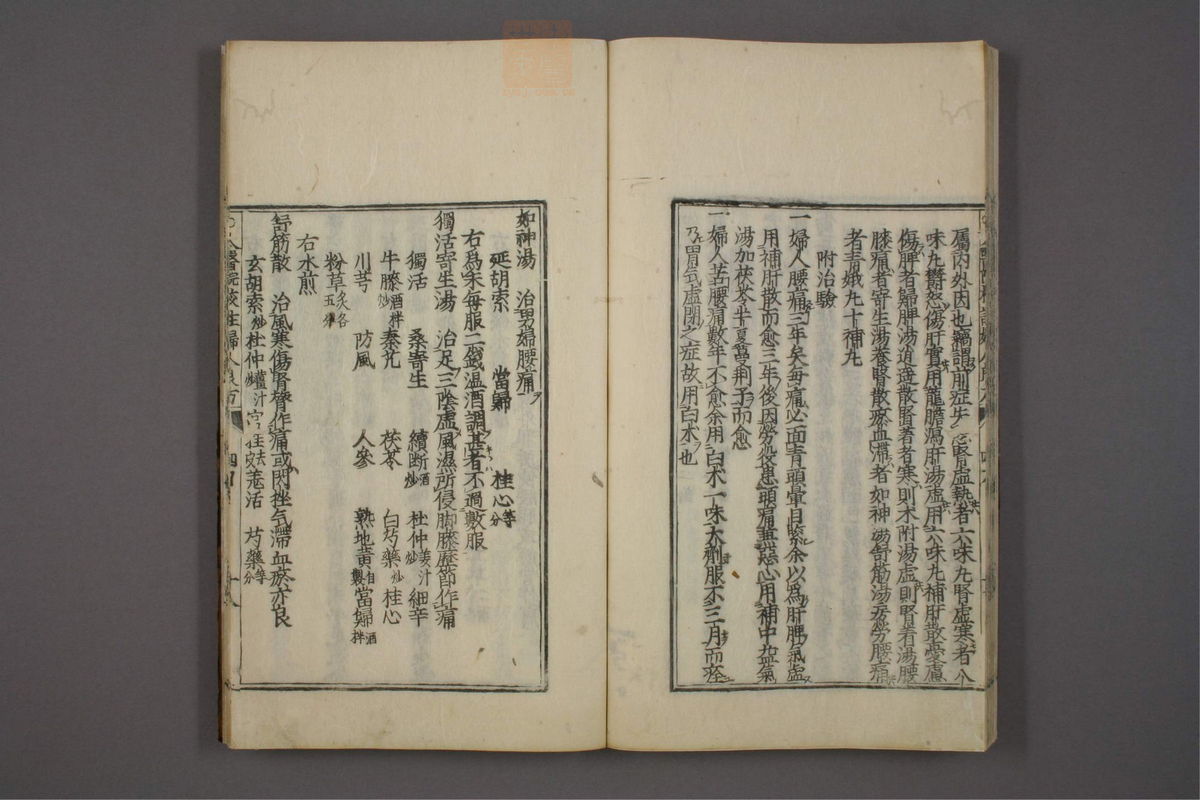 屬內外因也竊謂前症失 心腎虛熱者六味丸腎虛寒者八
味丸欝怒傷肝實用龍膽瀉肝湯虛用六味丸補肝散憂慮
傷脾者歸脾湯逍遙散腎著者寒則朮附湯虛則腎着湯腰
膝痛者寄生湯養腎散瘀血滯者如神湯舒筋湯房勞腰痛
者青娥丸十補丸
附治驗
一婦人腰痛三年矣毎痛必面青頭暈目緊余以爲肝脾氣虛
用補肝散而愈三年後因勞役患頭痛兼惡心用補中益氣
湯加茯苓半夏蔓荆子而愈
一婦人苦腰痛數年不愈余用白朮一味大劑服不三月而痊
乃胃氣虛閉之症故用白朮也
如神湯 治男婦腰痛
延胡索 當歸 桂心等分
右爲末毎服二錢溫酒調甚者不過數服
獨活寄生湯 治足三陰虛風濕所侵脚膝歷節作痛
獨活 桑寄生 續断酒炒 杜仲姜汁炒 細辛
牛膝酒拌炒 秦艽 茯苓 白芍藥炒 桂心
川芎 防風 人參 熟地黃自製 當歸酒拌
粉草炙各五分
右水煎
舒筋散 治風寒傷腎膂作痛或閃挫氣滯血瘀亦良
玄胡索炒 杜仲 官桂去皮 羌活 芍藥等分
醫院校註婦人良方